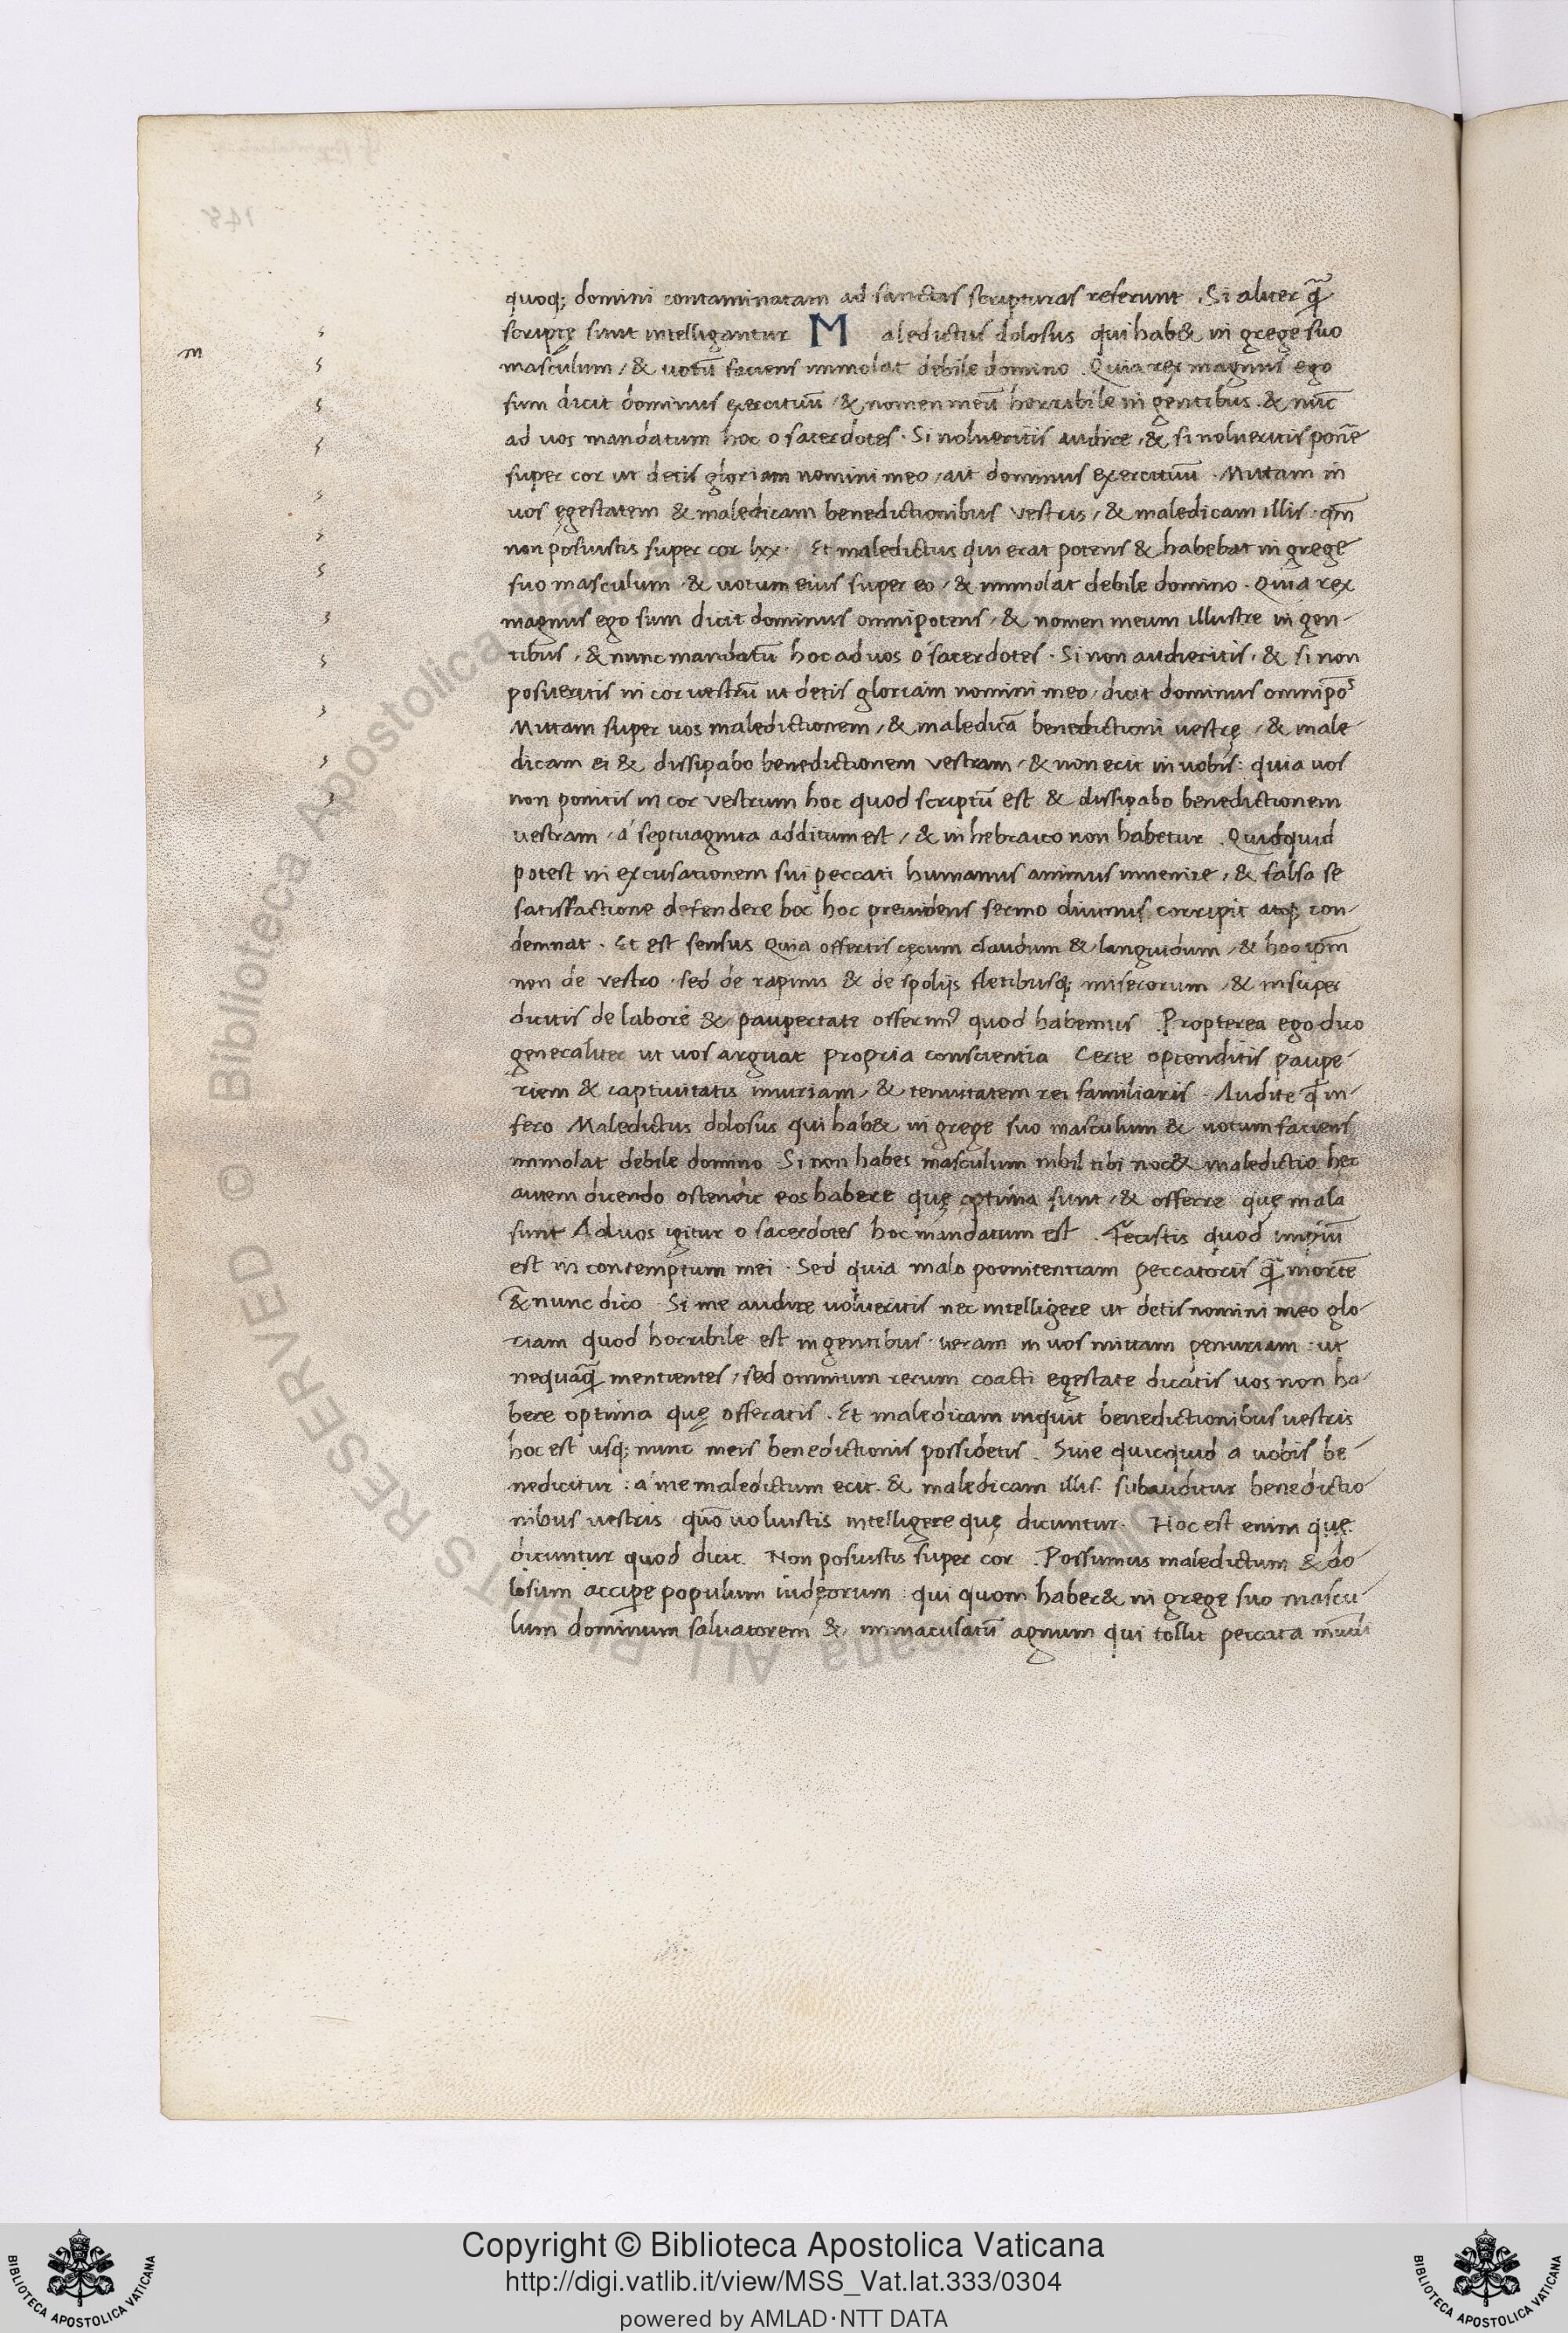 quoq; domini contaminatam ad sanctas scripturas referunt. Si aliter q̃
scriptę sunt intelligantur Maledictus dolosus qui hab& in grege suo
m
masculum, & uotũ faciens immolat debile domino. Quia rex magnus ego
sum dicit dominus exercituũ, & nomen meũ horribile in gentibus. & nũc
ad uos mandatum hoc o sacerdotes. Si nolueritis audire, & si nolueritis pone͂
super cor ut detis gloriam nomini meo, ait dominus exercituũ. Mittam in
uos ęgestatem & maledicam benedictionibus vestris, & maledicam illis. qm̃
non posuistis super cor lxx. Et maledictus qui erat potens & habebat in grege
suo masculum. & uotum eius super eo, & immolat debile domino. Quia rex
magnus ego sum dicit dominus omnipotens, & nomen meum illustre in gen-
tibus, & nunc mandatũ hoc ad uos ó sacerdotes. Si non audieritis, & si non
posueritis in cor uestrũ ut detis gloriam nomini meo, dicit dominus omnipõs
Mittam super uos maledictionem, & maledicã benedictioni uestrę, & male-
dicam ei & dissipabo benedictionem vestram, & non erit in uobis: quia uos
non ponitis in cor vestrum hoc quod scriptũ est & dissipabo benedictionem
uestram, á septuaginta additum est, & in hebraico non habetur. Quidquid
potest in excusationem sui peccati humanus animus inuenire, & falsa se
satisfactione defendere hoc hoc preuidens sermo diuinus corripit atq; con-
demnat. Et est sensus Quia offertis cęcum claudum & languidum, & hoc ipm̃
non de vestro. sed de rapinis & de spolijs fletibusq; miserorum, & insuper
dicitis de labore & paupertate offerim9 quod habemus Propterea ego dico
generaliter ut uos arguat propria conscientia Certe optenditis paupe-
riem & captiuitatis iniuriam, & tenuitatem rei familiaris. Audite q̃ in-
fero Maledictus dolosus qui hab& in grege suo masculum & uotum faciens
immolat debile domino Si non habes masculum nihil tibi noc& maledictio hęc
autem dicendo ostendit eos habere quę optima sunt, & offerre quę mala
sunt Ad uos igitur o sacerdotes hoc mandatum est. Fecistis quod impiũ
est in contemptum mei. Sed quia malo poenitentiam peccatoris q̃ morte͂
& nunc dico. Si me audire uolueritis nec intelligere ut detis nomini meo glo-
riam quod horribile est in gentibus. ueram in uos mittam penuriam: ut
nequaq̃ mentientes, sed omnium rerum coacti egęstate dicatis uos non ha-
bere optima quę offeratis. Et maledicam inquit benedictionibus uestris
hoc est usq; nunc meis benedictionis possidetis. Siue quicquid a uobis be-
nedicitur: á me maledictum erit. & maledicam illis. subauditur benedictio-
nibus uestris. quõ uoluistis intelligere quę dicuntur. Hoc est enim quę.
dicuntur quod dicit. Non posuistis super cor. Possumus maledictum & do-
losum accipe populum iudęorum: qui quom haber& in grege suo mascu-
lum dominum saluatorem & immaculatũ agnum qui tollit peccata mũdi
Copyright © Biblioteca Apostolica Vaticana
http://digi.vatlib.it/view/MSS_Vat.lat.333/0304
powered by AMLAD·NTT DATA
BIBLIOTECA APOSTOLICA VATICANA
BIBLIOTECA APOSTOLICA VATICANA